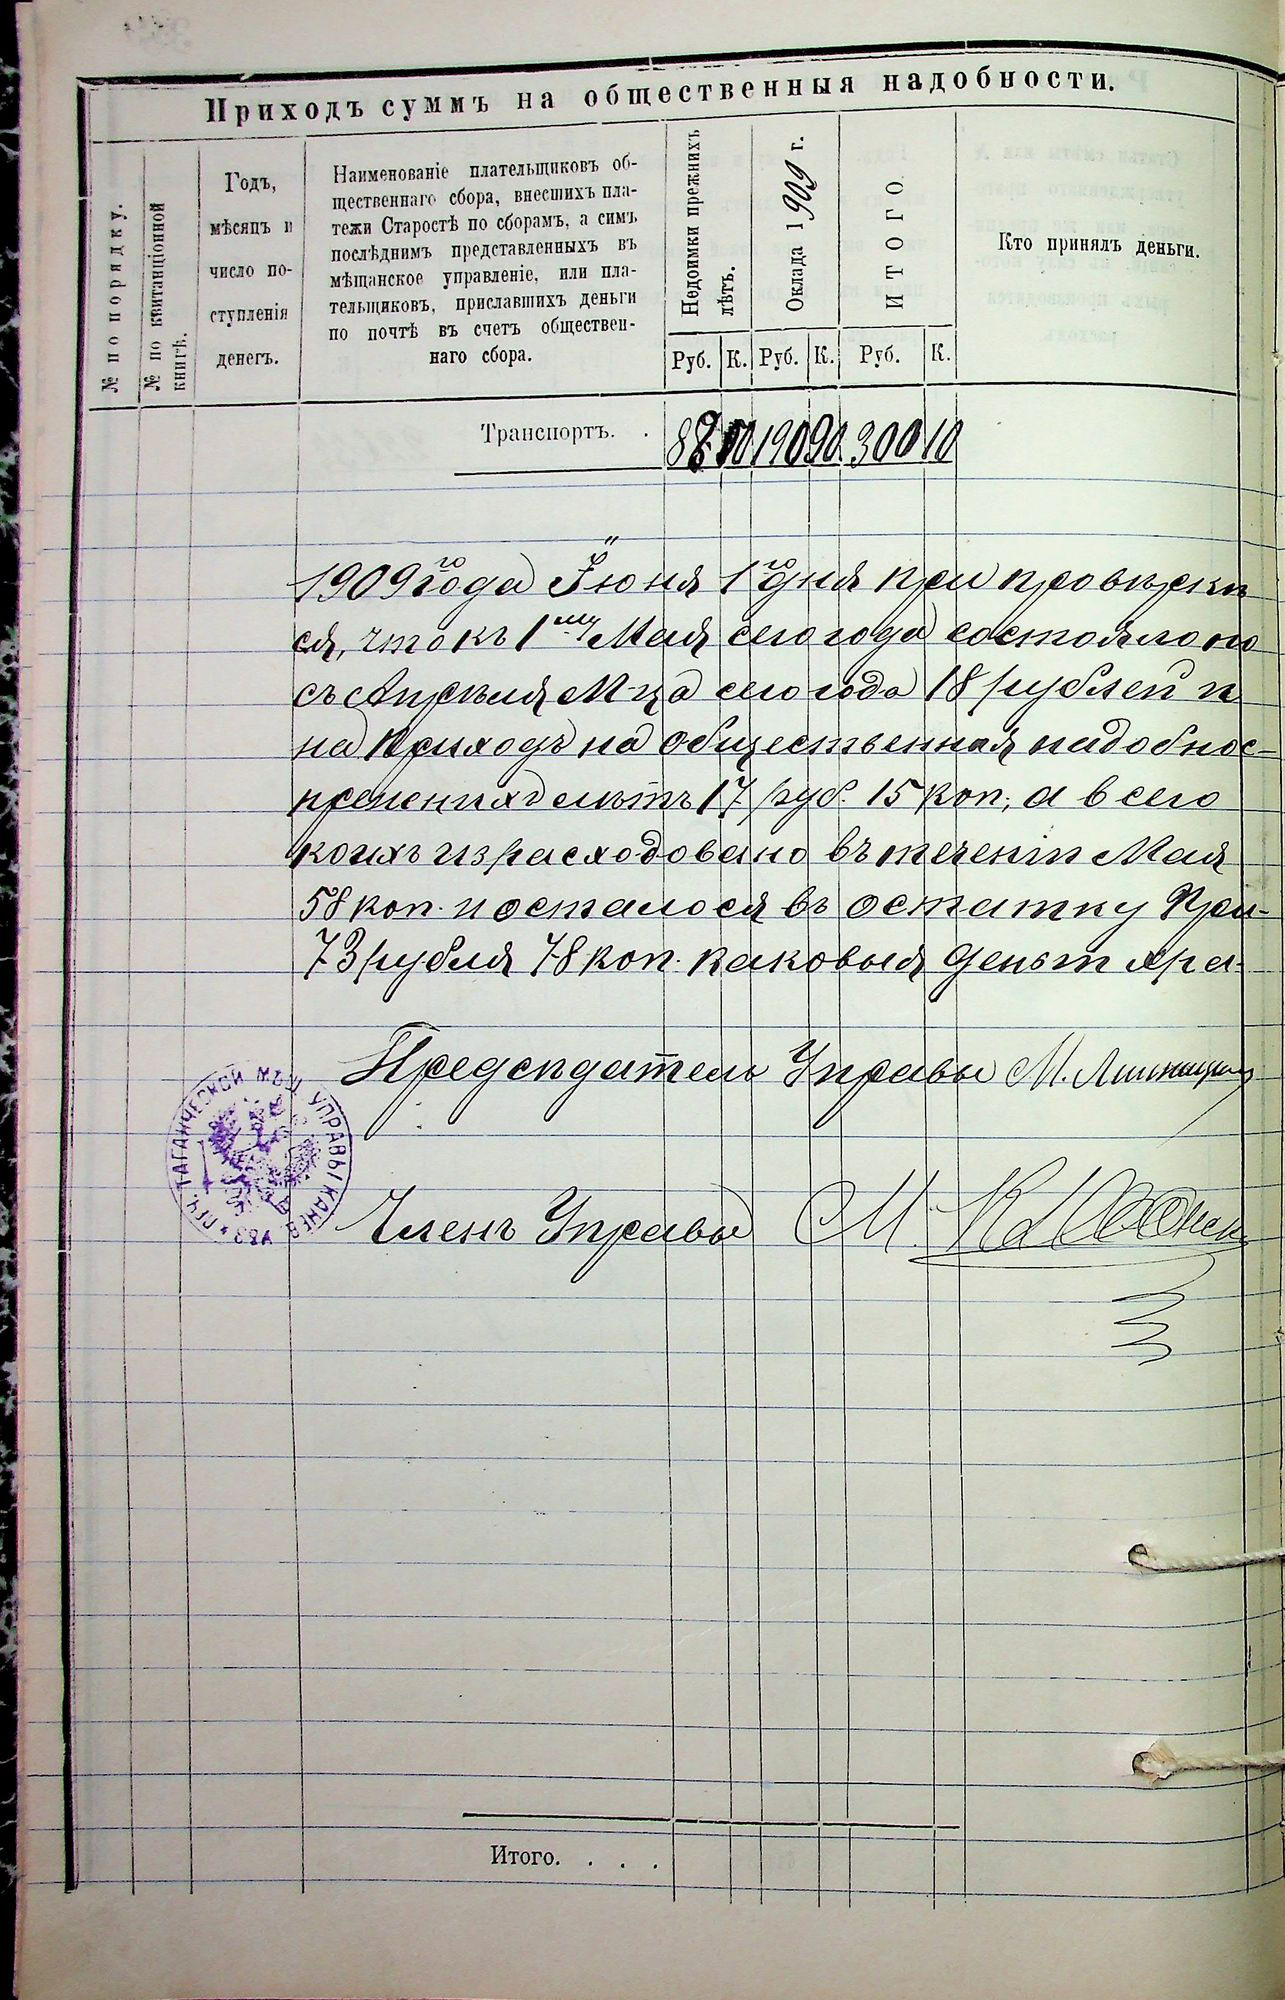 Приходъ суммъ на общественныя надобности.
№ по порядку.
№ по квитанціонной
книгѣ.
Годъ,
мѣсяцъ и
число по-
ступленія
денегъ.
Наименованіе плательщиковъ об-
щественнаго сбора, внесшихъ пла-
тежи Старостѣ по сборамъ, а симъ
послѣднимъ представленныхъ въ
мѣщанское управленіе, или пла-
тельщиковъ, приславшихъ деньги
по почтѣ въ счетъ обществен-
наго сбора.
Недоимки прежнихъ
лѣтъ.
Оклада 1909 г.
ИТОГО
Кто принялъ деньги.
Руб. К. Руб. К. Руб. К.
Транспортъ. . 190 90 300 10
1909 го года Іюня 1 го дня при провѣрки
ся, что къ 1му Мая сего года состояло по
съ Апрѣля М-ца сего года 18 рублей и
на приходъ на общественная надобнос-
прежнихъ лѣтъ 17 руб. 15 коп, а всего
коихъ израсходовано въ теченіи Мая
58 коп. и осталося въ остатку При-
73 рубля 78 коп. каковыя деньги хра-
Предсѣдатель Управы М.
Членъ Управы М.
ТАГАНЧЕСКОЙ МѢЩ. УПРАВЫ КАНЕВ. УѢЗ. * ПЕЧ.
Итого. . . .